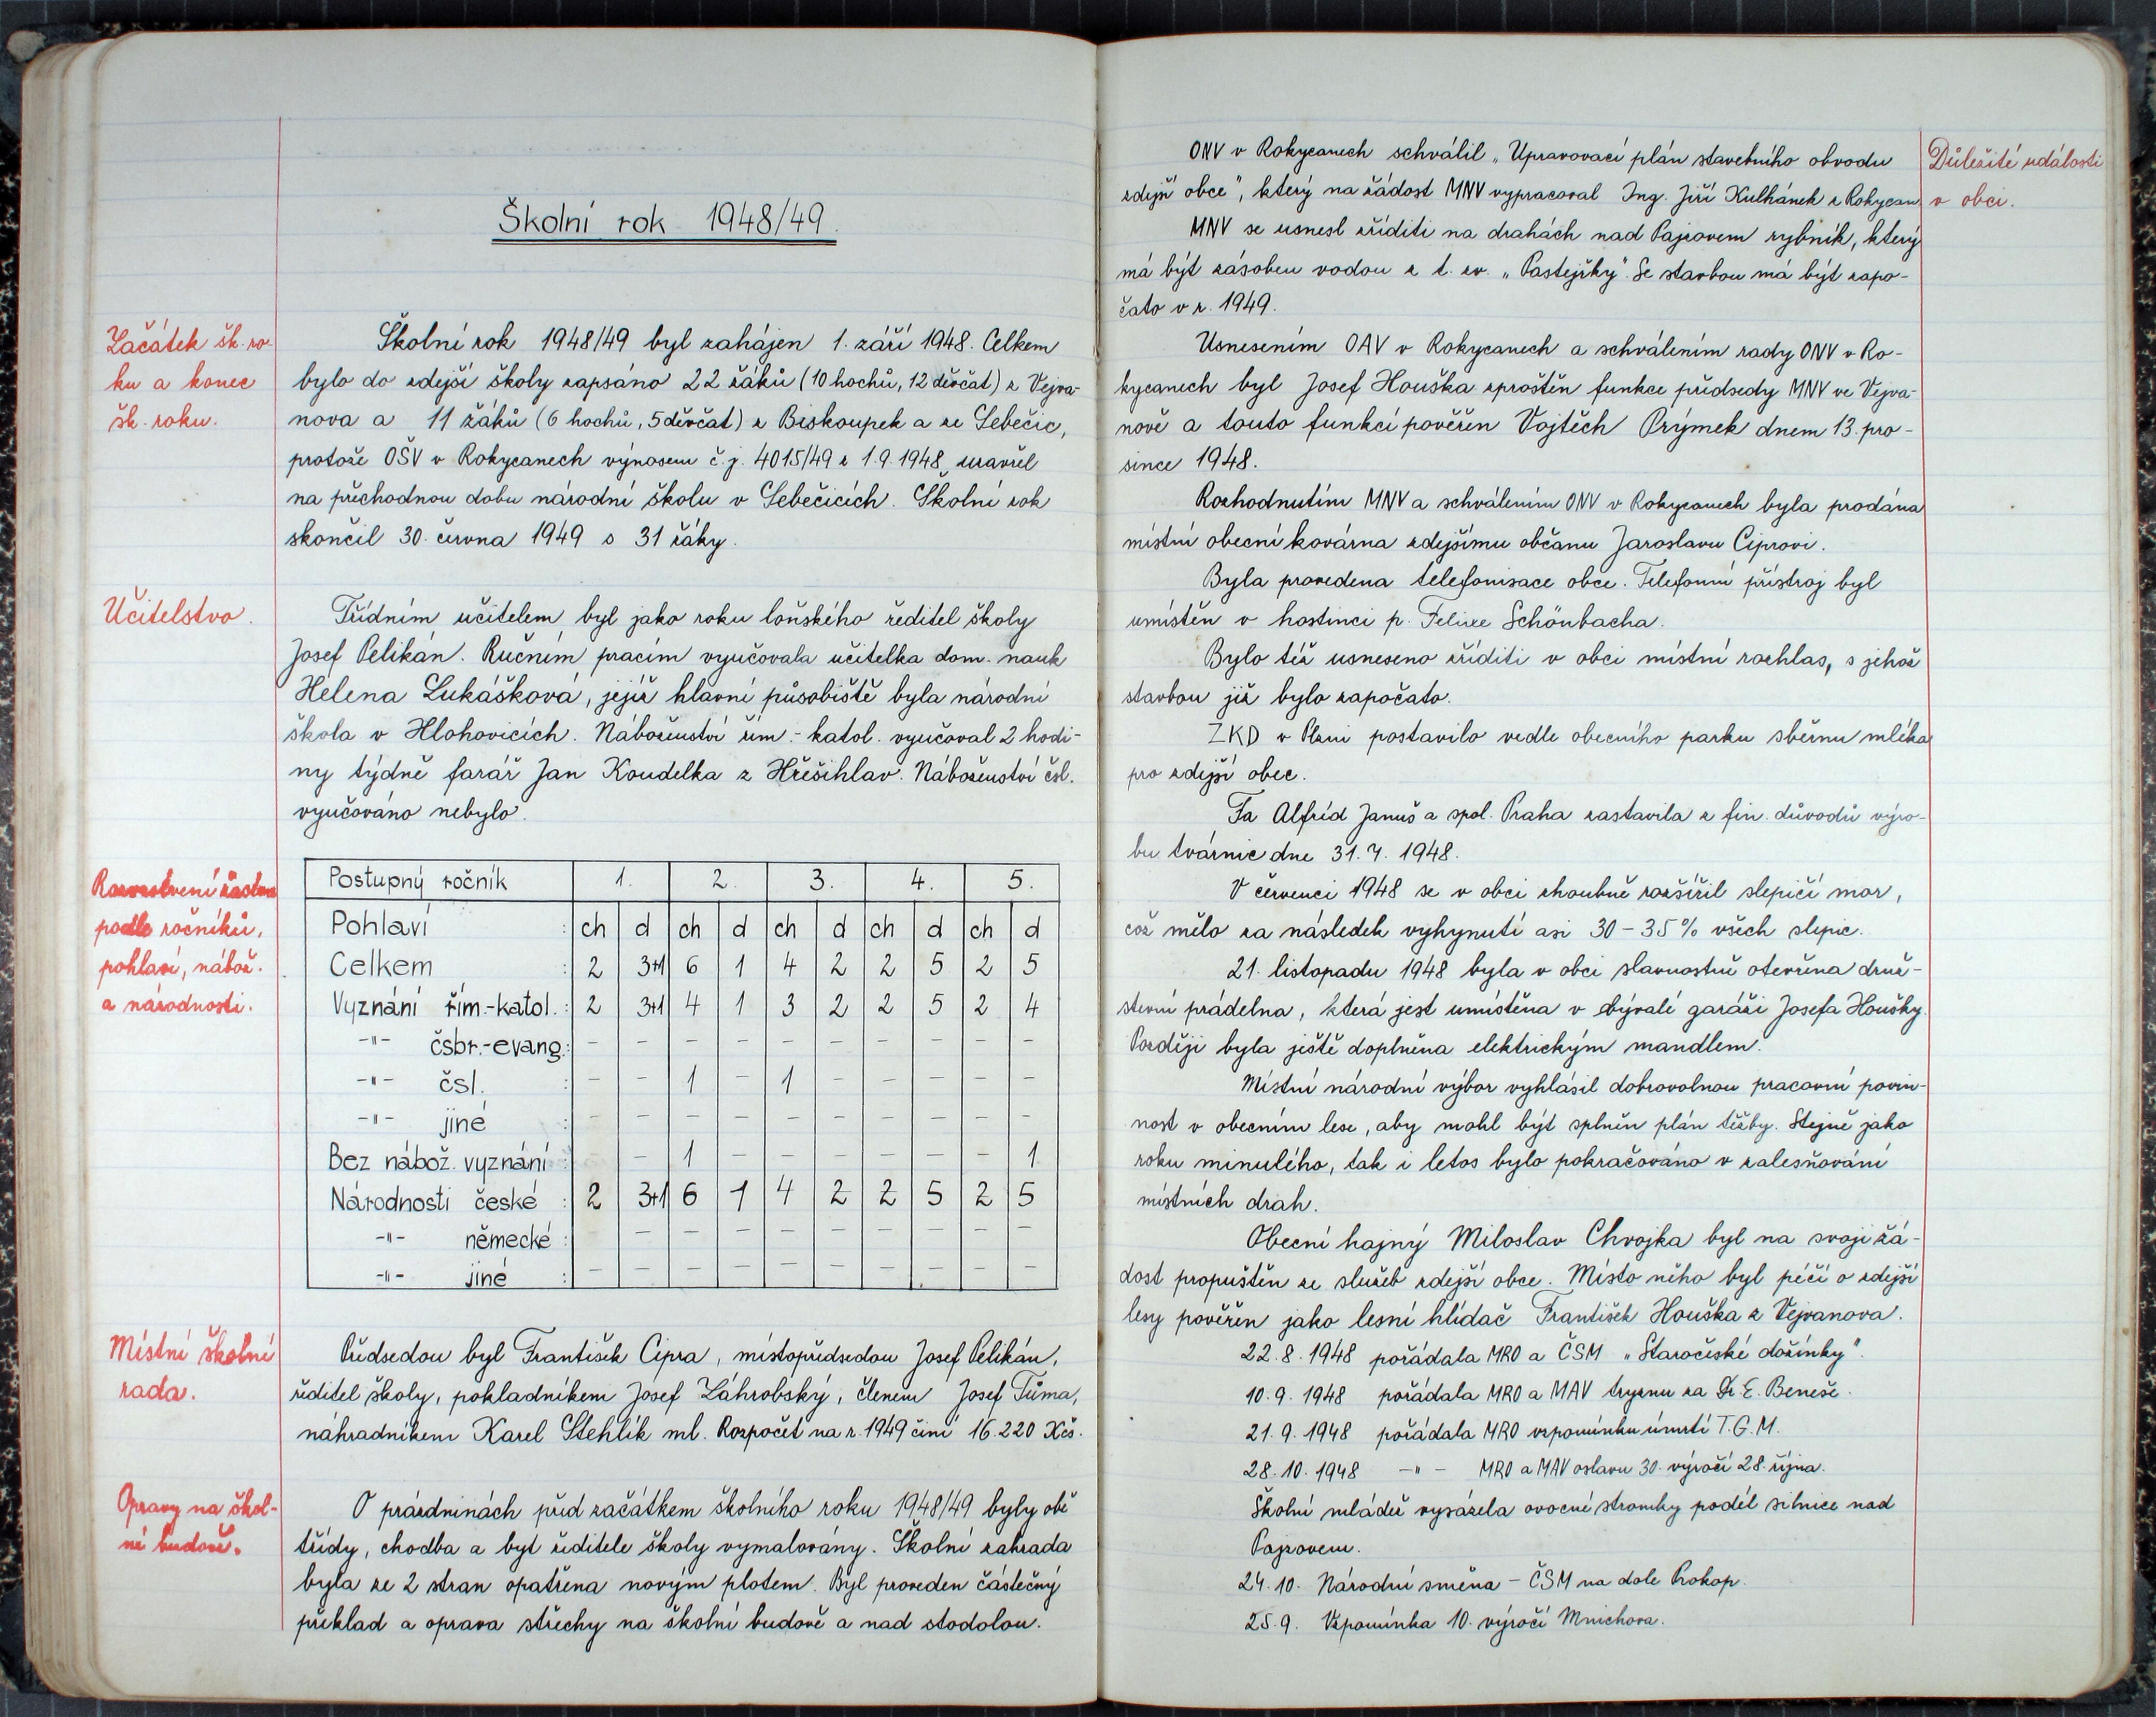 Školní rok 1948/49.
Začátek šk. ro-
ku a konec
šk. roku.
Školní rok 1948/49 byl zahájen 1. září 1948. Celkem
bylo do zdejší školy zapsáno 22 žáků (10 hochů, 12 děvčat) z Vejva-
nova a 11 žáků (6 hochů, 5 děvčat) z Biskoupek a ze Sebečic,
protože OŠV v Rokycanech výnosem č.j. 4015/49 z 1.9.1948 uzavřel
na přechodnou dobu národní školu v Sebečicích. Školní rok
skončil 30. června 1949 s 31 žáky.
Učitelstvo.
Třídním učitelem byl jako roku loňského ředitel školy
Josef Pelikán. Ručním pracím vyučovala učitelka dom. nauk
Helena Lukášková, jejíž hlavní působiště byla národní
škola v Hlohovicích. Náboženství řím.-katol. vyučoval 2 hodi-
ny týdně farář Jan Koudelka z Hřešihlav. Náboženství čsl.
vyučováno nebylo.
Rozvrstvení žactva
podle ročníků,
pohlaví, nábož.
a národnosti.
Postupný ročník 1. 2. 3. 4. 5.
Pohlaví : ch d ch d ch d ch d ch d
Celkem : 2 3+1 6 1 4 2 2 5 2 5
Vyznání řím.-katol. : 2 3+1 4 1 3 2 2 5 2 4
-"- čsbr.-evang.: - - - - - - - - - -
-"- čsl. : - - 1 - 1 - - - - -
-"- jiné : - - - - - - - - - -
Bez nábož. vyznání : - 1 - - - - - - 1
Národnosti české : 2 3+1 6 1 4 2 2 5 2 5
-"- německé : - - - - - - - - -
-"- jiné : - - - - - - - - - -
Místní školní
rada.
Předsedou byl František Cipra, místopředsedou Josef Pelikán,
ředitel školy, pokladníkem Josef Záhrobský, členem Josef Tůma,
náhradníkem Karel Stehlík ml. Rozpočet na r. 1949 činí 16.220 Kčs.
Opravy na škol-
ní budově.
O prázdninách před začátkem školního roku 1948/49 byly obě
třídy, chodba a byt ředitele školy vymalovány. Školní zahrada
byla ze 2 stran opatřena novým plotem. Byl proveden částečný
překlad a oprava střechy na školní budově a nad stodolou.
Důležité události
v obci.
ONV v Rokycanech schválil „Upravovací plán stavebního obvodu
zdejší obce", který na žádost MNV vypracoval Ing. Jiří Kulhánek z Rokycan.
MNV se usnesl zříditi na drahách nad Pajzovem rybník, který
má být zásoben vodou z t. zv. „Pastejřky". Se stavbou má být zapo-
čato v r. 1949.
Usnesením OAV v Rokycanech a schválením rady ONV v Ro-
kycanech byl Josef Houška zproštěn funkce předsedy MNV ve Vejva-
nově a touto funkcí pověřen Vojtěch Prýmek dnem 13. pro-
since 1948.
Rozhodnutím MNV a schválením ONV v Rokycanech byla prodána
místní obecní kovárna zdejšímu občanu Jaroslavu Ciprovi.
Byla provedena telefonisace obce. Telefonní přístroj byl
umístěn v hostinci p. Felixe Schönbacha.
Bylo též usneseno zříditi v obci místní rozhlas, s jehož
stavbou již bylo započato.
ZKD v Plzni postavilo vedle obecního parku sběrnu mléka
pro zdejší obec.
Fa Alfréd Januš a spol. Praha zastavila z fin. důvodů výro-
bu tvárnic dne 31.7. 1948.
V červenci 1948 se v obci zhoubně rozšířil slepičí mor,
což mělo za následek vyhynutí asi 30-35% všech slepic.
21. listopadu 1948 byla v obci slavnostně otevřena druž-
stevní prádelna, která jest umístěna v bývalé garáži Josefa Houšky.
Později byla ještě doplněna elektrickým mandlem.
Místní národní výbor vyhlásil dobrovolnou pracovní povin-
nost v obecním lese, aby mohl být splněn plán těžby. Stejně jako
roku minulého, tak i letos bylo pokračováno v zalesňování
místních drah.
Obecní hajný Miloslav Chvojka byl na svoji žá-
dost propuštěn ze služeb zdejší obce. Místo něho byl péčí o zdejší
lesy pověřen jako lesní hlídač František Houška z Vejvanova.
22.8. 1948 pořádala MRO a ČSM „Staročeské dožínky".
10.9. 1948 pořádala MRO a MAV tryznu za Dr. E. Beneše.
21.9. 1948 pořádala MRO vzpomínku úmrtí T.G.M.
28.10. 1948 -"- MRO a MAV oslavu 30. výročí 28. října.
Školní mládež vysázela ovocné stromky podél silnice nad
Pajzovem.
24.10. Národní směna - ČSM na dole Prokop.
25.9. Vzpomínka 10. výročí Mnichova.